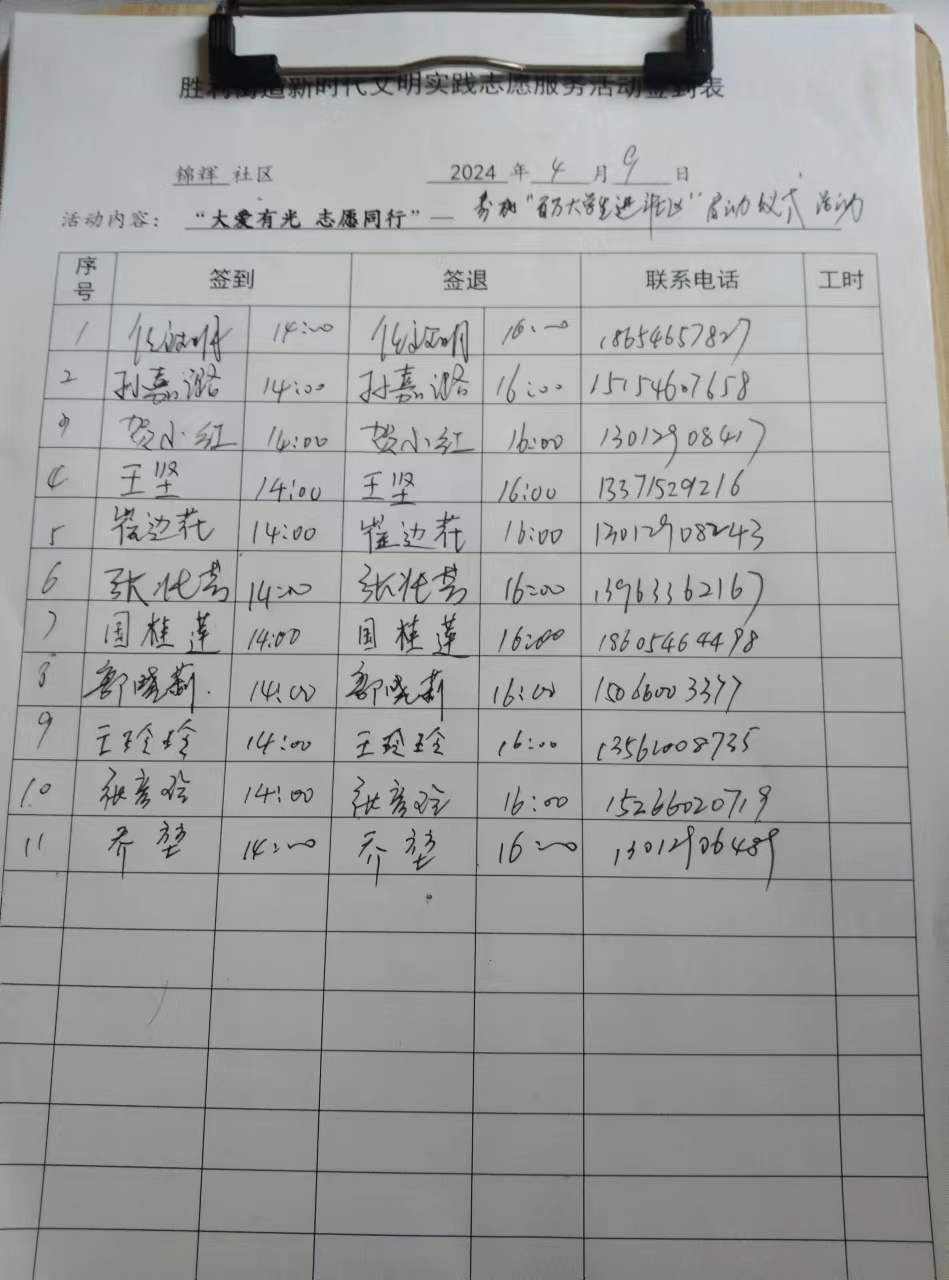 胜利街道新时代文明实践志愿服务活动签到表
锦辉 社区 2024 年 4 月 9 日
活动内容： “大爱有光 志愿同行”— 参加“百万大学生进社区”启动仪式 活动
序号 签到 签退 联系电话 工时
1 14:00 16:00 18654657827
2 孙嘉潞 14:00 孙嘉潞 16:00 15154607658
3 贺小红 14:00 贺小红 16:00 13012908417
4 王坚 14:00 王坚 16:00 13371529216
5 崔边花 14:00 崔边花 16:00 13012908243
6 14:00 16:00 13963362167
7 国桂莲 14:00 国桂莲 16:00 18605464498
8 郭晓莉 14:00 郭晓莉 16:00 15066003377
9 王玲玲 14:00 王玲玲 16:00 13561008735
10 张彦玲 14:00 张彦玲 16:00 15266020719
11 乔堃 14:00 乔堃 16:00 13012906489